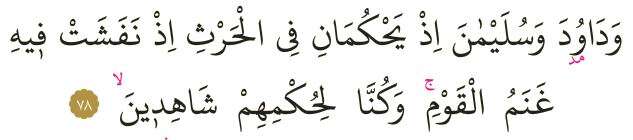 وَدَاوُ۫دَ وَسُلَيْمٰنَ اِذْ يَحْكُمَانِ فِى الْحَرْثِ اِذْ نَفَشَتْ ف۪يهِ
غَنَمُ الْقَوْمِۚ وَكُنَّا لِحُكْمِهِمْ شَاهِد۪ينَۙ ﴿٧٨﴾